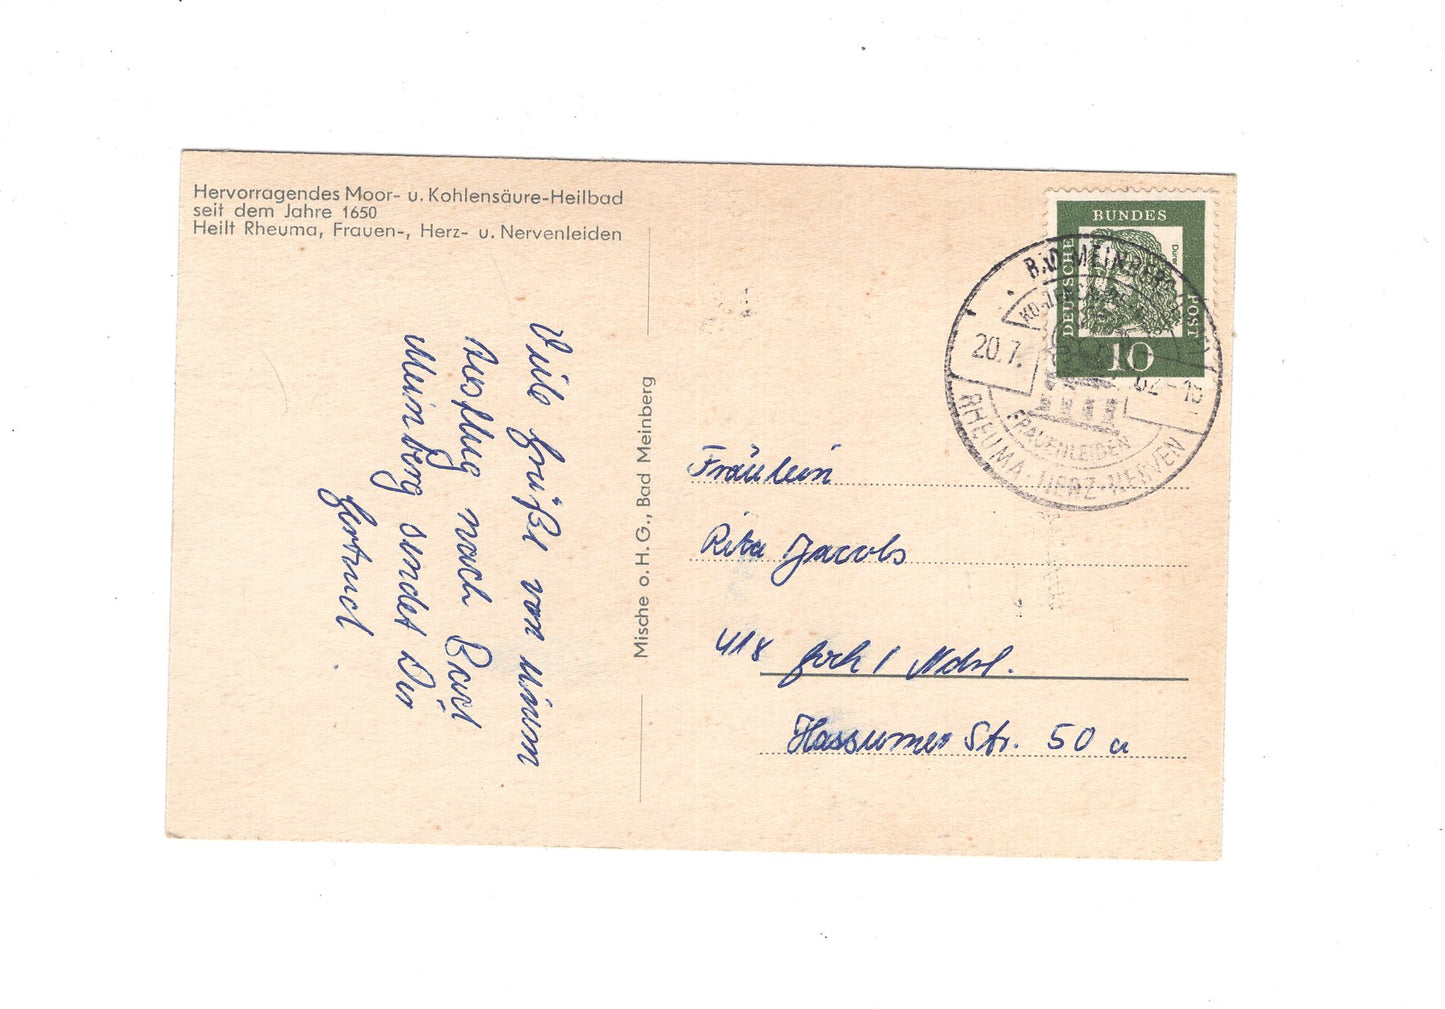 Hervorragendes Moor- u. Kohlensäure-Heilbad
seit dem Jahre 1650
Heilt Rheuma, Frauen-, Herz- u. Nervenleiden
Viele Grüße von einem
Ausflug nach Bad
Meinberg sendet Dir
Gertrud
Mische o. H. G., Bad Meinberg
BUNDES
DEUTSCHE
POST
10
BAD MEINBERG
20.7.
62-19
FRAUENLEIDEN
RHEUMA · HERZ · NERVEN
Fräulein
Rita Jacobs
418 Goch / Ndrh.
Hassumer Str. 50 a